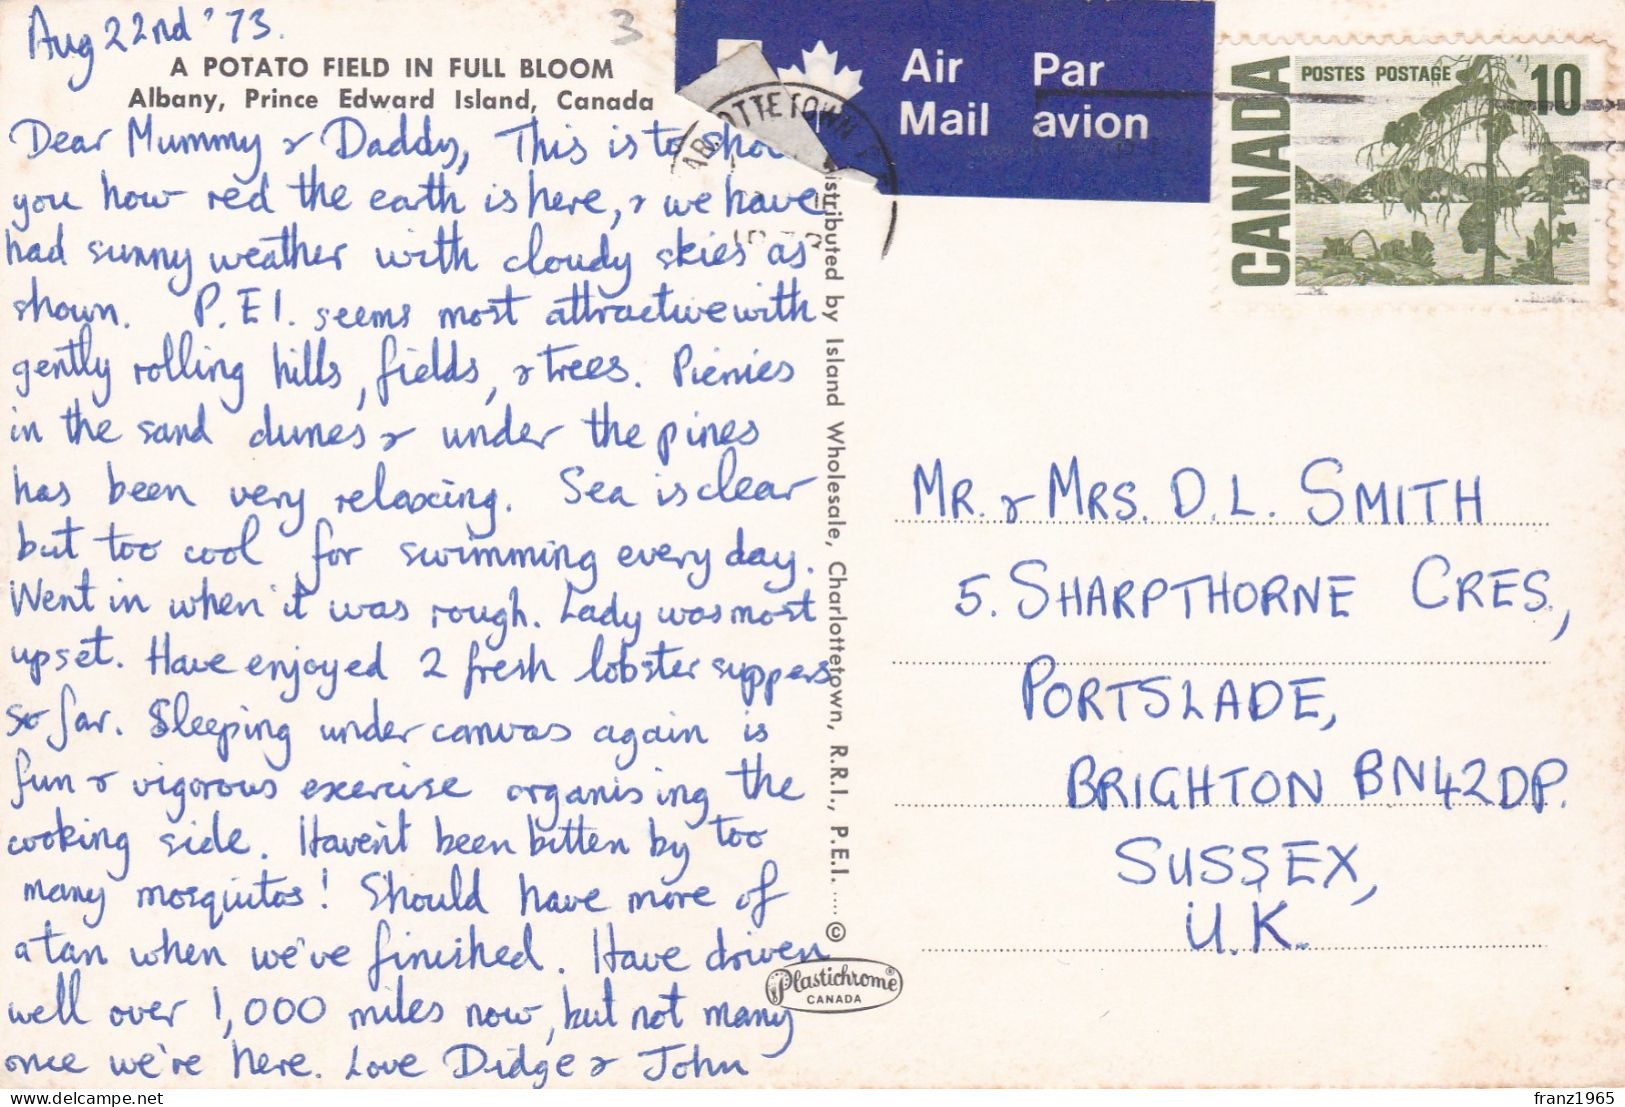 Aug 22nd '73.
3
A POTATO FIELD IN FULL BLOOM
Albany, Prince Edward Island, Canada
Dear Mummy & Daddy, This is to show
you how red the earth is here, & we have
had sunny weather with cloudy skies as
shown. P.E.I. seems most attractive with
gently rolling hills, fields, & trees. Picnics
in the sand dunes & under the pines
has been very relaxing. Sea is clear
but too cool for swimming every day.
Went in when it was rough. Lady was most
upset. Have enjoyed 2 fresh lobster suppers
so far. Sleeping under canvas again is
fun & vigorous exercise organising the
cooking side. Haven't been bitten by too
many mosquitos! Should have more of
a tan when we've finished. Have driven
well over 1,000 miles now, but not many
once we're here. Love Didge & John
Distributed by Island Wholesale, Charlottetown, R.R.1., P.E.I. .... ©
Plastichrome®
CANADA
Air Mail
Par avion
CANADA
POSTES POSTAGE
10
MR. & MRS. D. L. SMITH
5. SHARPTHORNE CRES.,
PORTSLADE,
BRIGHTON BN42DP.
SUSSEX,
U.K.
delcampe.net
franz1965